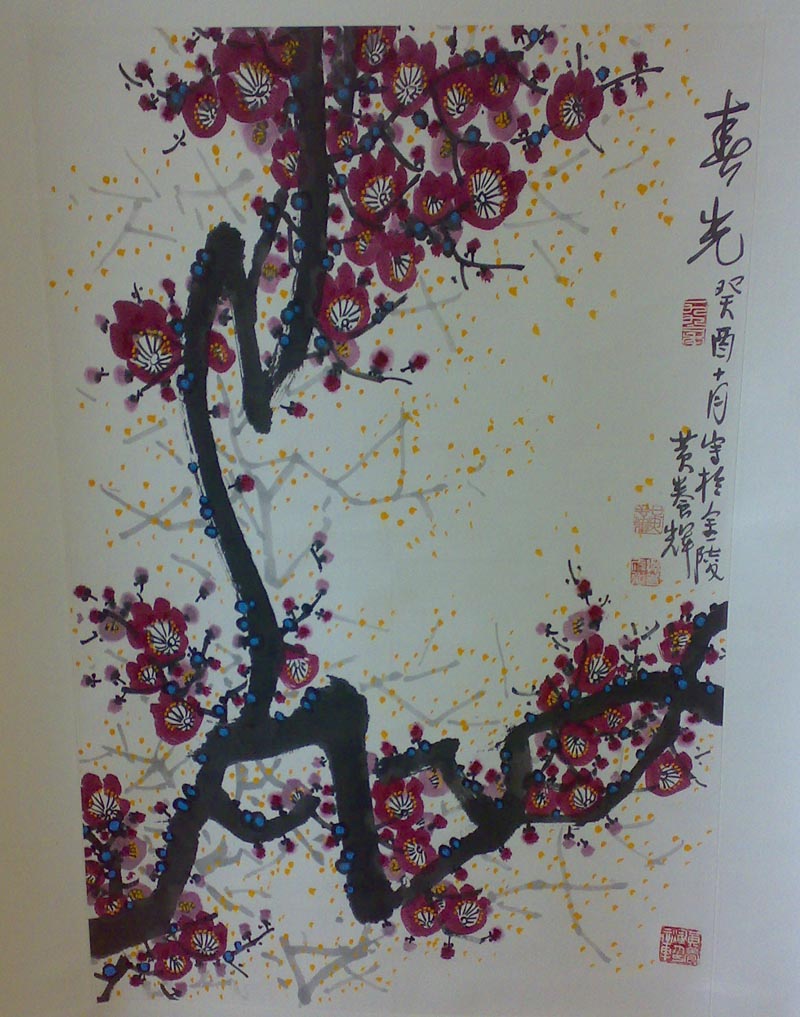 春光 癸酉十月写于金陵
黄养辉